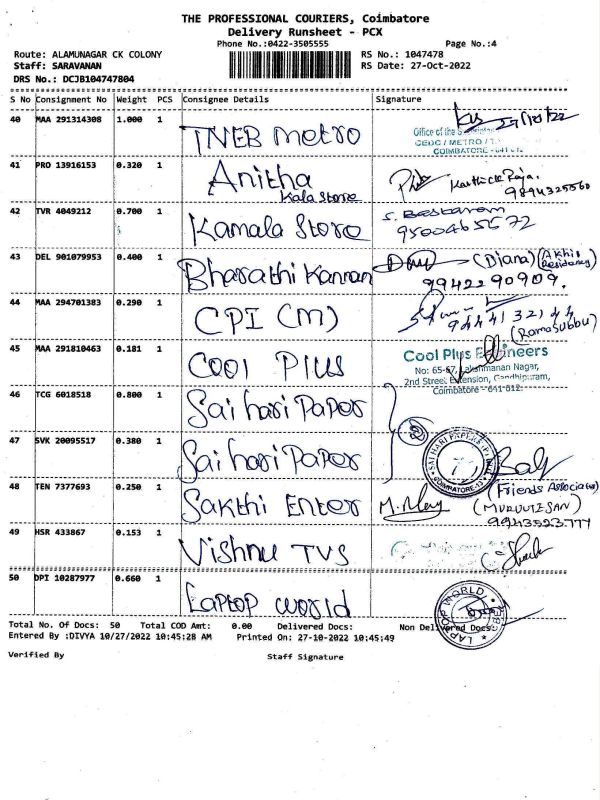 THE PROFESSIONAL COURIERS, Coimbatore
Delivery Runsheet - PCX
Phone No.:0422-3505555 Page No.:4
Route: ALAMUNAGAR CK COLONY RS No.: 1047478
Staff: SARAVANAN RS Date: 27-Oct-2022
DRS No.: DCJB104747804
S No Consignment No Weight PCS Consignee Details Signature
40 MAA 291314308 1.000 1 TNEB Metro 27/10/22
Office of the
CEDC / METRO /
COIMBATORE - 641 012
41 PRO 13916153 0.320 1 Anitha Karthick Raja.
Kala Store 9894325560
42 TVR 4049212 0.700 1 Kamala Store S. Baskaram
9500465672
43 DEL 901079953 0.400 1 Bharathi Kannan (Diana) (Akhis Residency)
9942290909.
44 MAA 294701383 0.290 1 CPI (M) 9444132144
(Ramasubbu)
45 MAA 291810463 0.181 1 Cool Plus Cool Plus Engineers
No: 65-67, Lakshmanan Nagar,
2nd Street Extension, Gandhipuram,
Coimbatore - 641 012
46 TCG 6018518 0.800 1 Sai hari Paper
2
47 SVK 20095517 0.380 1 Sai hari Paper SAI HARI PAPERS (P) LTD COIMBATORE-12
48 TEN 7377693 0.250 1 Sakthi Enter (Friends Associates)
(MURUGESAN)
9943523777
49 HSR 433867 0.153 1 Vishnu TVS
50 DPI 10287977 0.660 1 Laptop world LAPTOP WORLD
Total No. Of Docs: 50 Total COD Amt: 0.00 Delivered Docs: Non Delivered Docs:
Entered By :DIVYA 10/27/2022 10:45:28 AM Printed On: 27-10-2022 10:45:49
Verified By Staff Signature